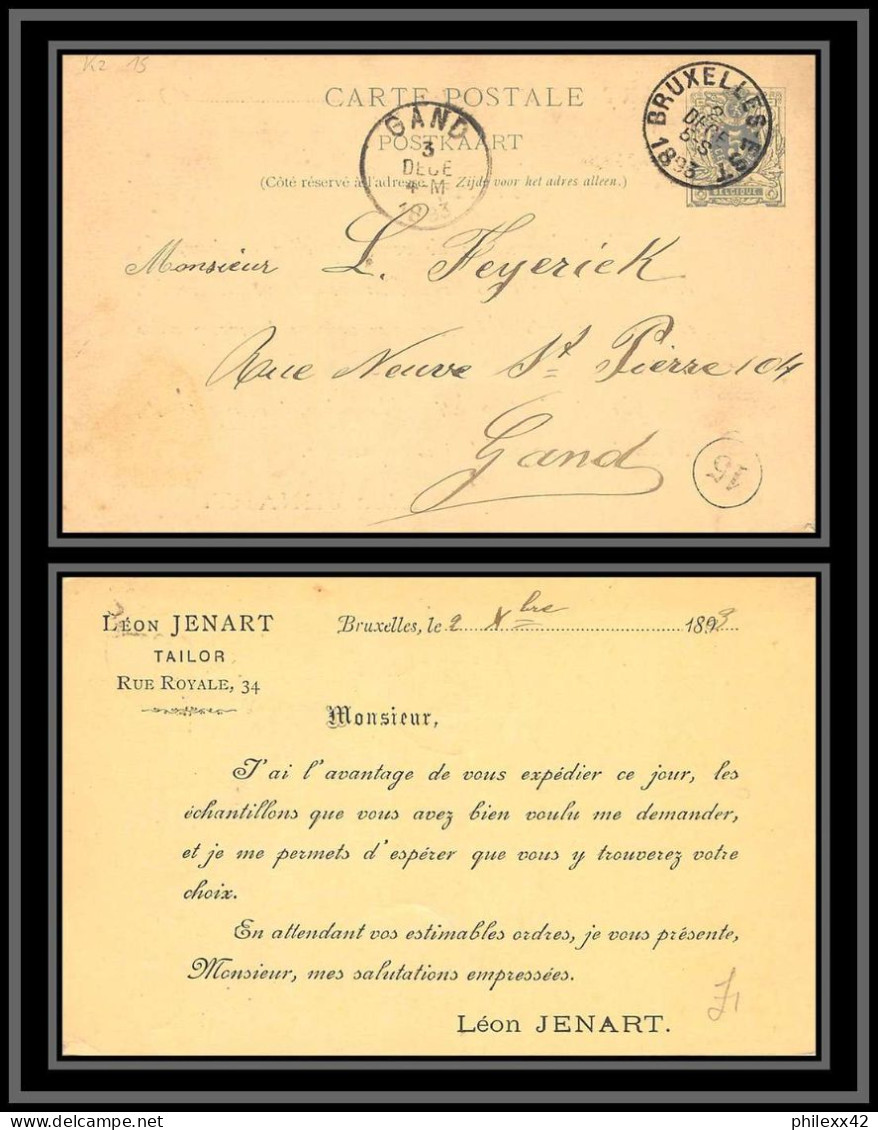 K2 15
CARTE POSTALE
POSTKAART
(Côté réservé à l'adresse. — Zijde voor het adres alleen.)
GAND
3
DECE
4-M
1893
BRUXELLES EST
DECE
1893
BELGIQUE
Monsieur L. Feyerick
Rue Neuve St Pierre 104
Gand
LÉON JENART
TAILOR
RUE ROYALE, 34
Bruxelles, le 2 Xbre 1893
Monsieur,
J'ai l'avantage de vous expédier ce jour, les
échantillons que vous avez bien voulu me demander,
et je me permets d'espérer que vous y trouverez votre
choix.
En attendant vos estimables ordres, je vous présente,
Monsieur, mes salutations empressées.
Léon JENART.
philexx42